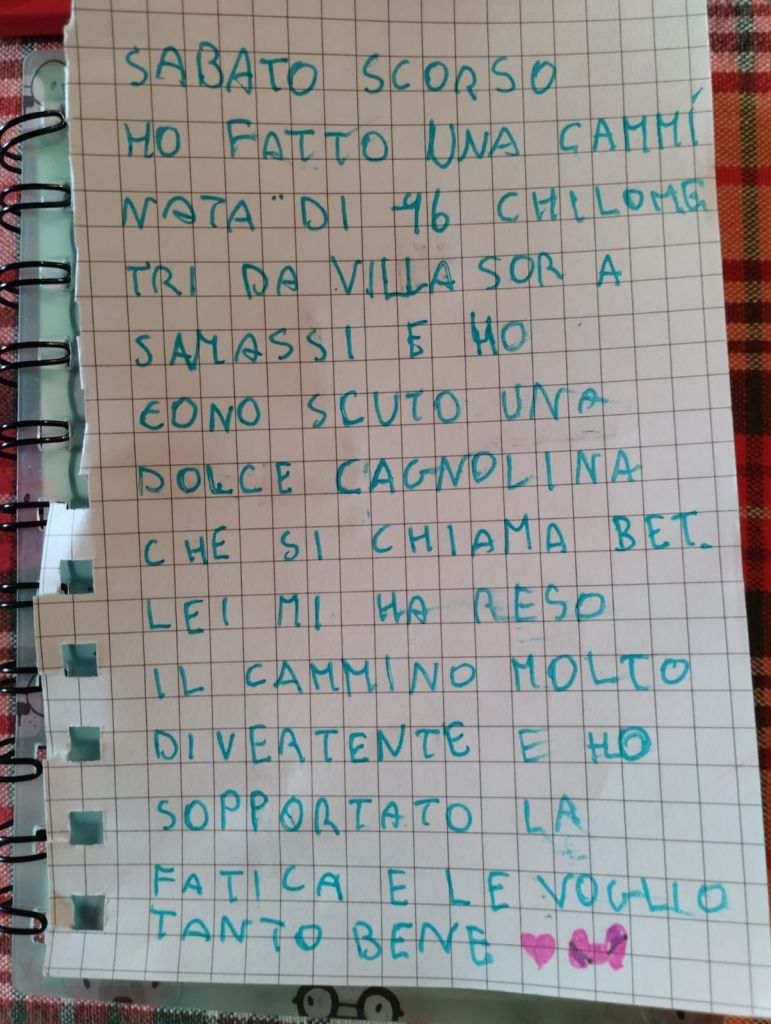 SABATO SCORSO
HO FATTO UNA CAMMI
NATA" DI 16 CHILOME
TRI DA VILLASOR A
SAMASSI E HO
CONO SCUTO UNA
DOLCE CAGNOLINA
CHE SI CHIAMA BET.
LEI MI HA RESO
IL CAMMINO MOLTO
DIVERTENTE E HO
SOPPORTATO LA
FATICA E LE VOGLIO
TANTO BENE